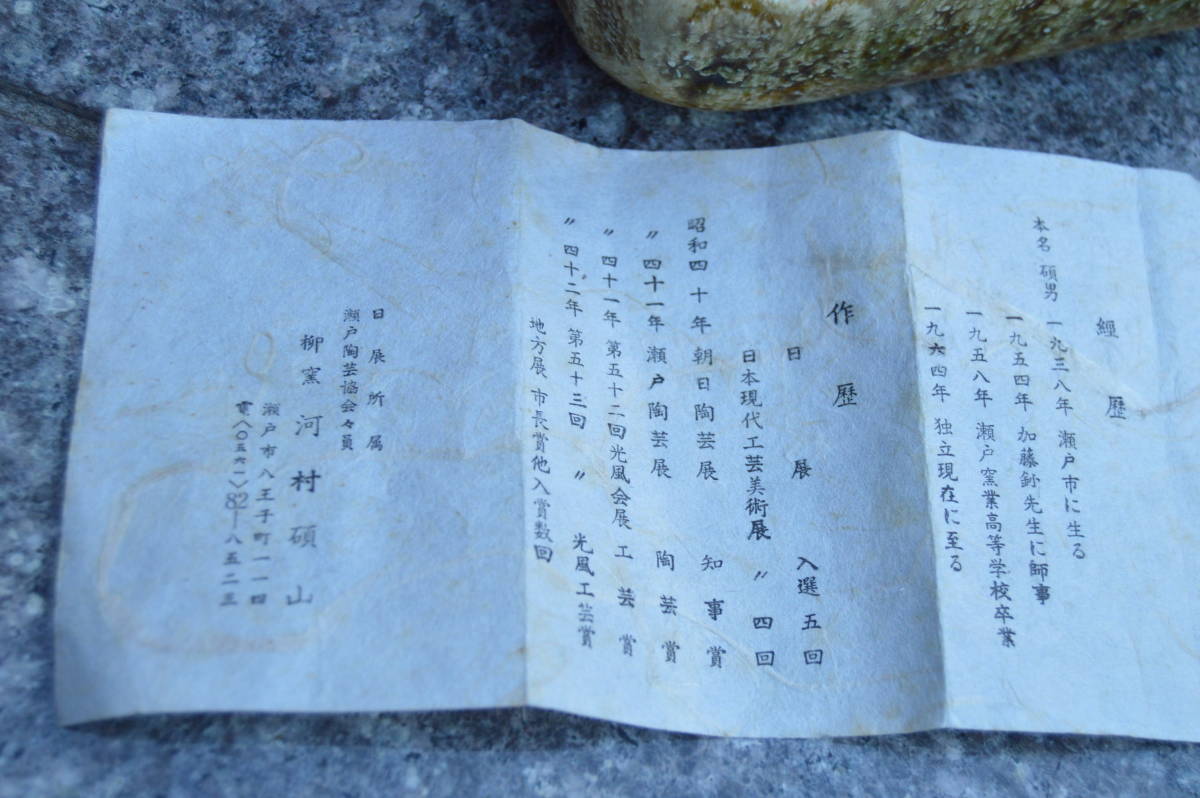 經歴
本名 碩男
一九三八年 瀬戸市に生る
一九五四年 加藤釥先生に師事
一九五八年 瀬戸窯業高等学校卒業
一九六四年 独立現在に至る
作歴
日展 入選五回
日本現代工芸美術展 〃 四回
昭和四十年 朝日陶芸展 知事賞
〃 四十一年 瀬戸陶芸展 陶芸賞
〃 四十一年 第五十二回光風会展 工芸賞
〃 四十二年 第五十三回 〃 光風工芸賞
地方展 市長賞他入賞数回
日展所属
瀬戸陶芸協会々員
柳窯 河村碩山
瀬戸市八王子町一一四
電〈〇五六一〉82―八五二三